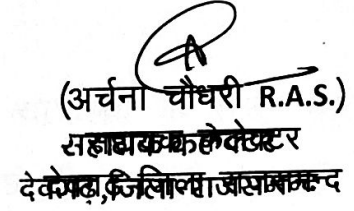 (अर्चना चौधरी R.A.S.)
सहायक कलेक्टर
देवगढ़, जिला राजसमन्द